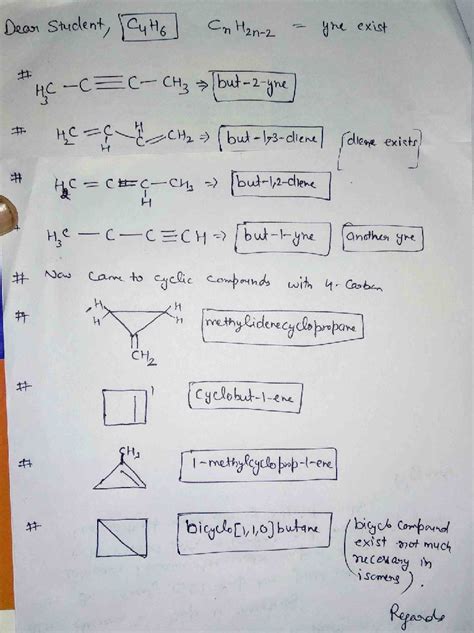 Dear Student, C4H6 CnH2n-2 = yne exist
# H3C - C≡C- CH3 ⇒ but-2-yne
# H2C = C H H C = CH2 ⇒ but-1,3-diene [diene exists]
# H2C = C = C - CH3 ⇒ but-1,2-diene
H
H3C - C - C≡CH ⇒ but-1-yne another yne
# Now came to cyclic compounds with 4-Carbon
# H H H H methylidenecyclopropane
CH2
# 1 cyclobut-1-ene
# CH3 1-methylcycloprop-1-ene
# bicyclo[1,1,0]butane (bicyclo compound
exist not much
necessary in
isomers).
Regards